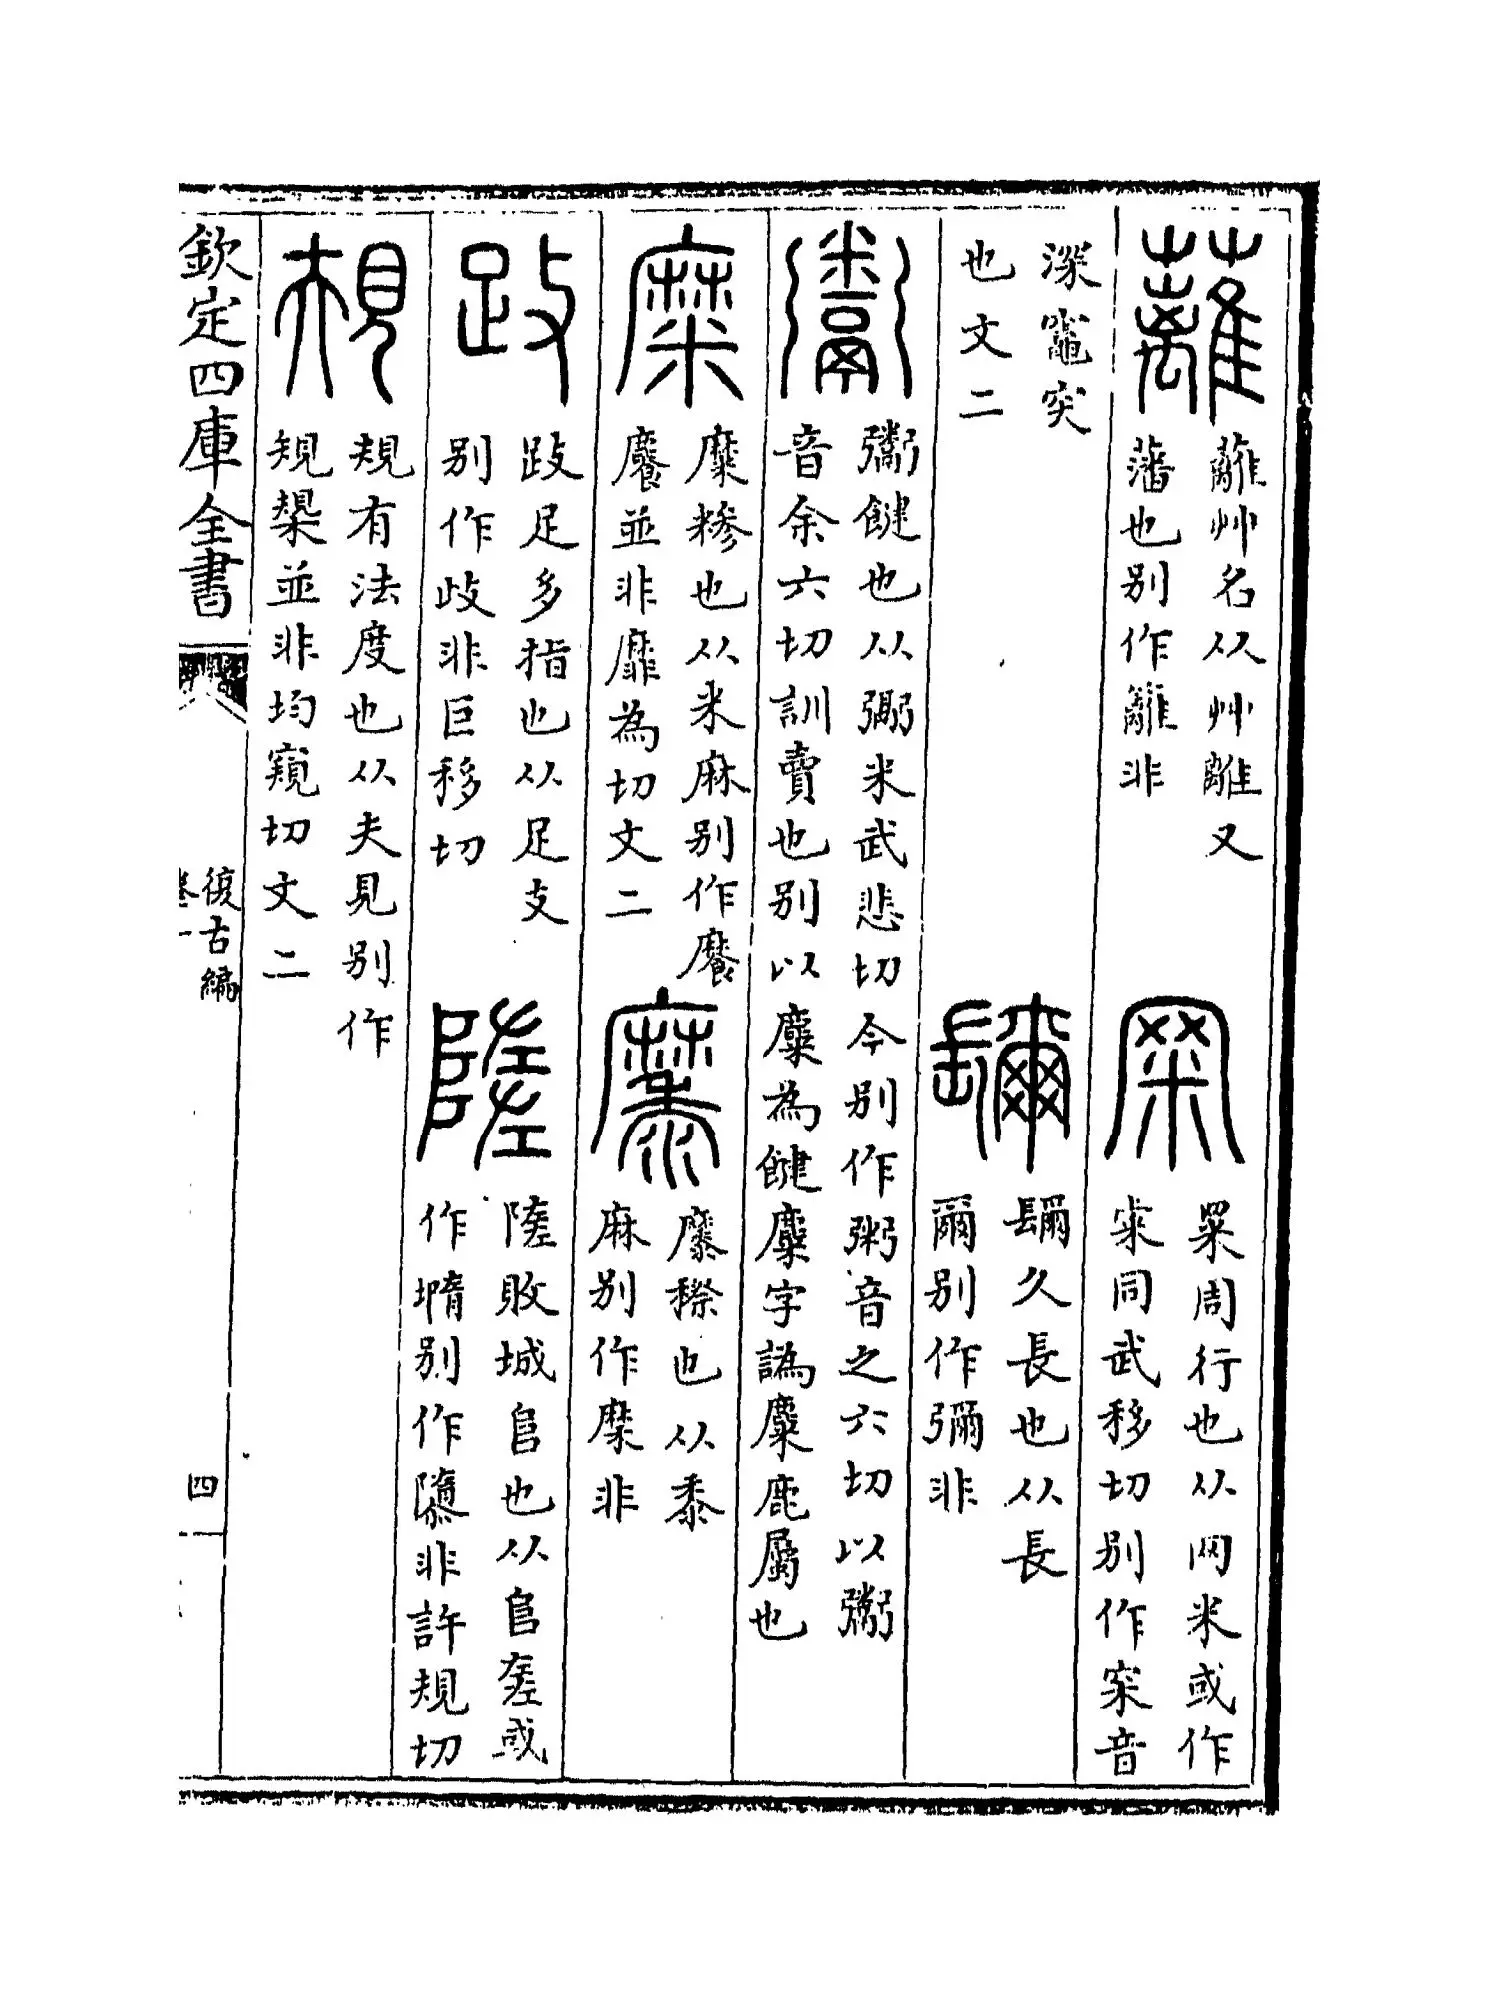 蘺
蘺艸名从艸離又
藩也别作籬非
𥥍
罙周行也从网米或作
𡧳同武移切别作冞音
深竈突
也文二
镾
镾久長也从長
爾别作彌非
鬻
鬻健也从䰜米武悲切今别作粥音之六切以鬻
音余六切訓賣也别以麋為饘麋字譌麋鹿屬也
糜
糜糝也从米麻别作䭧
䭧並非靡為切文二
𪎭
𪎭穄也从黍
麻别作穈非
跂
跂足多指也从足支
别作歧非巨移切
隓
隓敗城𨸏也从𨸏㒸或
作墮别作隳非許規切
規
規有法度也从夫見别作
䂓槼並非均窺切文二
欽定四庫全書
復古編
卷一
四